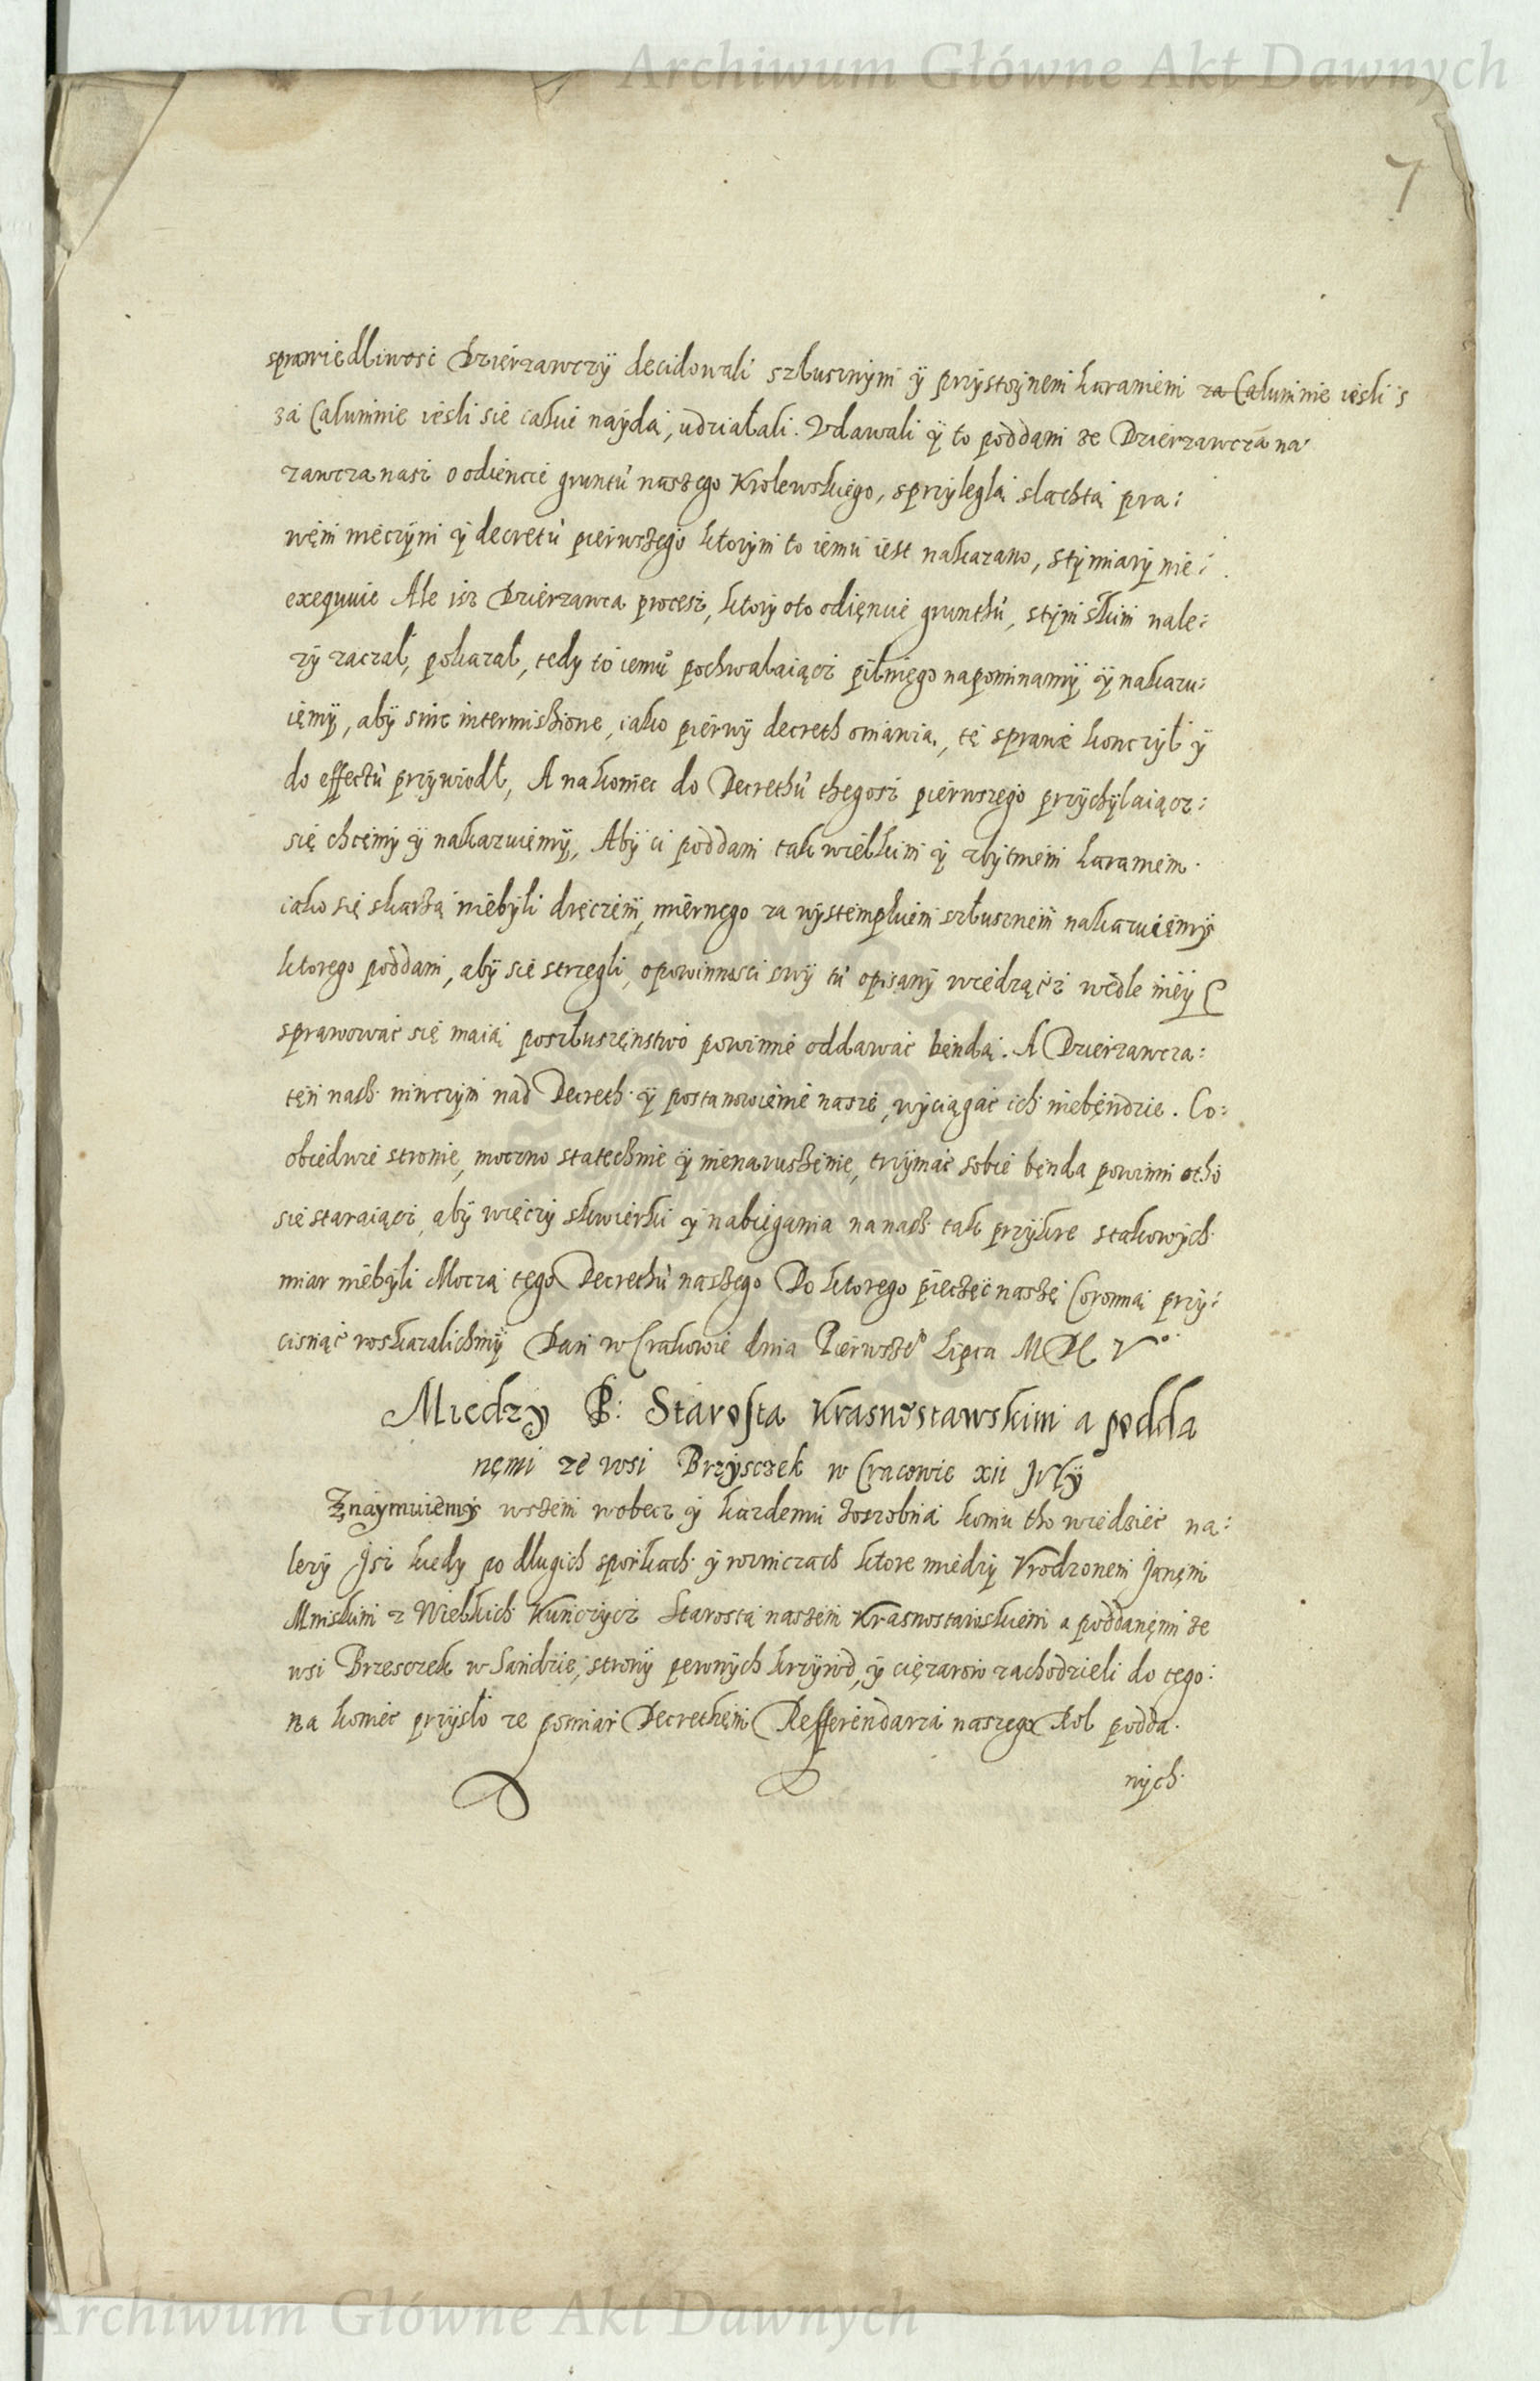 Archiwum Główne Akt Dawnych
7
sprawiedliwosc Dzierzawczÿ decidowali szłusznÿm ÿ przÿstoÿnem karaniem za Calumnie iesli s
za Calumnie iesli sie takie naÿdą, udziałali. Vdawali ÿ to poddani ze Dzierzawcza na
zawcza nasz o odiencie gruntu naszego Krolewskiego, sprzÿległą slachtą pra:
wem nieczÿni ÿ decretu pierwszego ktorÿm to iemu iest nakazano, stÿ miarÿ nie:
exequuie Ale isz Dzierzawca proces, ktorÿ oto odięncie grunthu, stÿm s kim nale:
zÿ zaczał, pokazał, tedy to iemu pochwalaiącz pilnięgo napominamÿ ÿ nakazu:
ięmÿ, abÿ sine intermissione, iako pierwÿ decreth omawia, tę sprawe konczÿł ÿ
do effectu przÿwiodł, A na koniec do Decrethu thegosz pierwszego przÿchÿlaiącz:
się chcemÿ ÿ nakazuięmÿ, Abÿ ci poddani tak wielkim ÿ zbÿtniem karaniem
iako się skarzą niebÿli dręczeni, miernego za wÿstempkiem szłusznem nakazuięmÿ
ktorego poddani, abÿ sie strzegli, o powinnosci swÿ tu opisanÿ wiedzącz wedle nieÿ
sprawowac się maią poszłuszęnstwo powinne oddawac będą. A Dzierzawcza:
ten nasz niwczÿm nad Decreth ÿ postanowienie nasze, wÿciągac ich niebęndzie. Co:
obiedwie stronie, moczno statecznie ÿ nienaruszenie, trzÿmac sobie bęnda powinni otho
sie staraiącz, abÿ więczÿ skwierki ÿ nabiegania na nasz tak przÿkre stakowÿch
miar niebÿli Moczą tego Decrethu naszego Do ktorego pieczęc naszę Coronną przÿ:
cisnąc roskazalichmÿ Dan w Crakowie dnia Pierwsze° Lipca M D L V°
Miedzy P: Starosta Krasnostawskim a podda
nęmi ze wsi Brzÿsczek w Cracowie xii Julÿ
Znaÿmuiemÿ wszem wobecz ÿ kazdemu zoszobna komu tho wiedziec na:
lezÿ Isz kiedy po dlugich sporkach ÿ rozniczach ktore miedzÿ Vrodzonem Janęm
Mniskim z Wielkich Kunczÿcz Starostą naszem Krasnostawskiem a poddanęmi ze
wsi Brzesczek w Sandzie, stronÿ pewnÿch krzÿwd, ÿ cięzarow zachodzieli do tego:
na koniec przÿsło ze pomiar Decrethęm Refferendarza naszego Rol podda
nÿch
Archiwum Główne Akt Dawnych